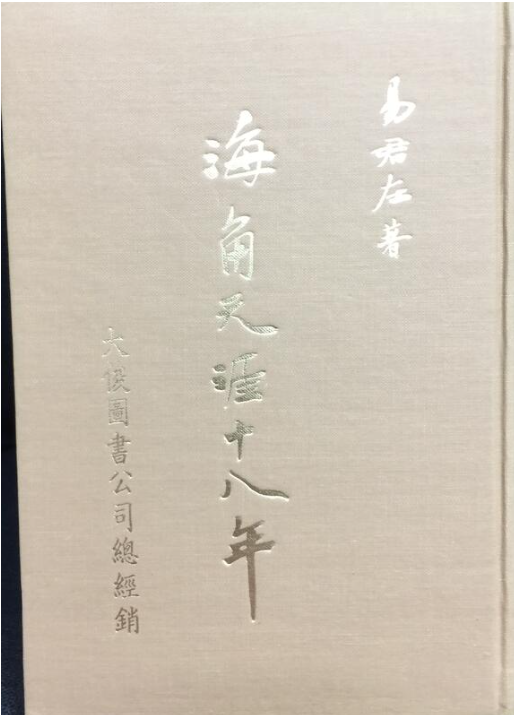 易君左著
海角天涯十八年
大俠圖書公司總經銷